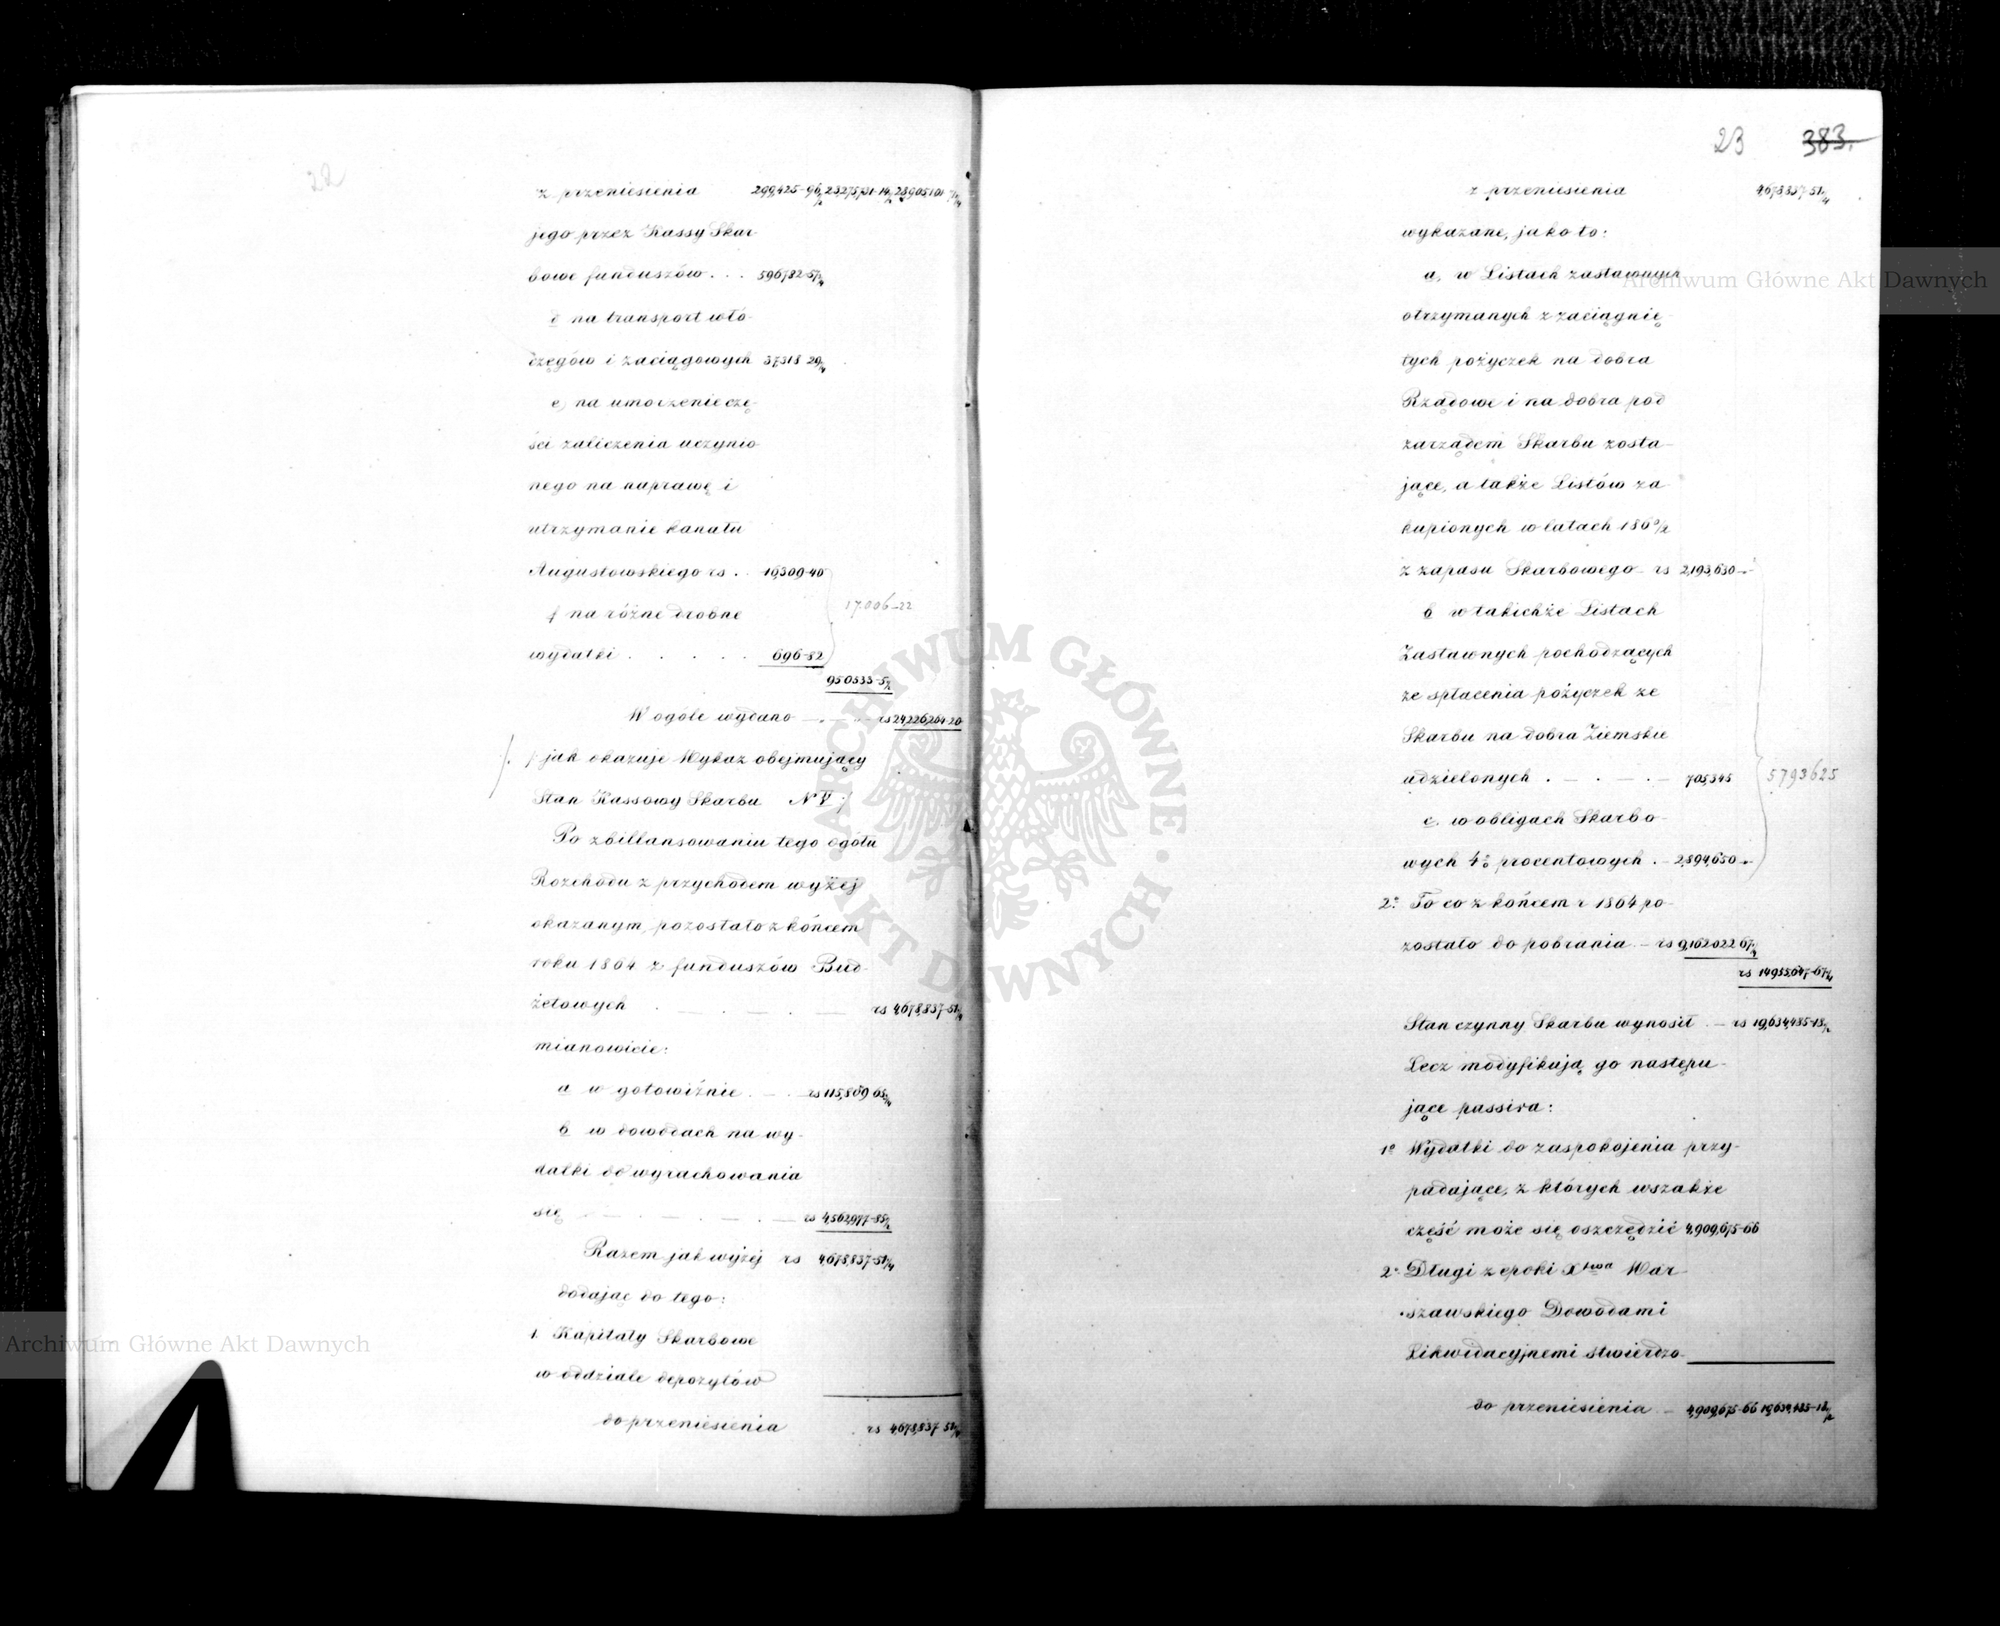 22
z przeniesienia 299,425-96½ 23,275,731-14½ 23,905,101
jego przez Kassy Skar-
bowe funduszów . . . 596,782-57¼
d na transport włó-
częgów i zaciągowych 37,318 29¼
e) na umorzenie czę-
ści zaliczenia uczynio-
nego na naprawę i
utrzymanie kanału
Augustowskiego rs . . 16,309-40
17.006-22
f na różne drobne
wydatki . . . . . 696-82
950533-5½
W ogóle wydano — . — rs 24,226,264-20
/: jak okazuje Wykaz obejmujący
Stan Kassowy Skarbu N V :/
Po zbillansowaniu tego ogółu
Rozchodu z przychodem wyżej
okazanym, pozostało z końcem
roku 1864 z funduszów Bud-
żetowych . — . — rs 4,678,837-51¼
mianowicie:
a w gotowiźnie . — . rs 115,859 65¾
b w dowodach na wy-
datki do wyrachowania
się — . — . — rs 4,562,977-85½
Razem jak wyżej rs 4,678,837-51¼
dodając do tego:
1. Kapitały Skarbowe
w oddziale depozytów
do przeniesienia rs 4,678,837 51¼
23 383.
z przeniesienia 4,678,837-51¼
wykazane, jako to:
a, w Listach zastawnych
otrzymanych z zaciągnię-
tych pożyczek na dobra
Rządowe i na dobra pod
zarządem Skarbu zosta-
jące, a także Listów za-
kupionych w latach 186⁰/₂
z zapasu Skarbowego - rs 2,193,630 —
b w takichże Listach
Zastawnych pochodzących
ze spłacenia pożyczek ze
Skarbu na dobra Ziemskie
udzielonych . — . — . — 705,345
5,793625
c. w obligach Skarbo-
wych 4% procentowych . — 2,894,650 —
2° To co z końcem r 1864 po-
zostało do pobrania — rs 9,162022 67¼
rs 14955,647-67¼
Stan czynny Skarbu wynosił . — rs 19,634,485-18½
Lecz modyfikują go następu-
jące passiva:
1° Wydatki do zaspokojenia przy-
padające, z których wszakże
część może się oszczędzić 4,909,675-66
2° Długi z epoki Xtwa War-
szawskiego Dowodami
Likwidacyjnemi stwierdzo-
do przeniesienia — 4,909,675-66 19,634,485-18½
Archiwum Główne Akt Dawnych
Archiwum Główne Akt Dawnych
ARCHIWUM GŁÓWNE · AKT DAWNYCH ·